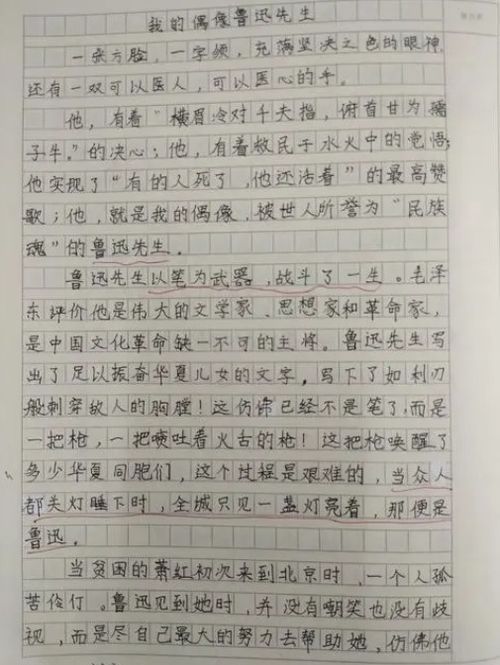 我的偶像鲁迅先生
一张方脸，一字须，充满坚决之色的眼神，
还有一双可以医人，可以医心的手。
他，有着“横眉冷对千夫指，俯首甘为孺
子牛。”的决心；他，有着救民于水火中的觉悟；
他实现了“有的人死了，他还活着”的最高赞
歌；他，就是我的偶像，被世人所誉为“民族
魂”的鲁迅先生。
鲁迅先生以笔为武器，战斗了一生。毛泽
东评价他是伟大的文学家、思想家和革命家，
是中国文化革命缺一不可的主将。鲁迅先生写
出了足以振奋华夏儿女的文字，写下了如利刃
般刺穿敌人的胸膛！这仿佛已经不是笔了，而是
一把枪，一把喷吐着火舌的枪！这把枪唤醒了
多少华夏同胞们，这个过程是艰难的，当众人
都关灯睡下时，全城只见一盏灯亮着，那便是
鲁迅。
当贫困的萧红初次来到北京时，一个人孤
苦伶仃。鲁迅见到她时，并没有嘲笑也没有歧
视，而是尽自己最大的努力去帮助她，仿佛他